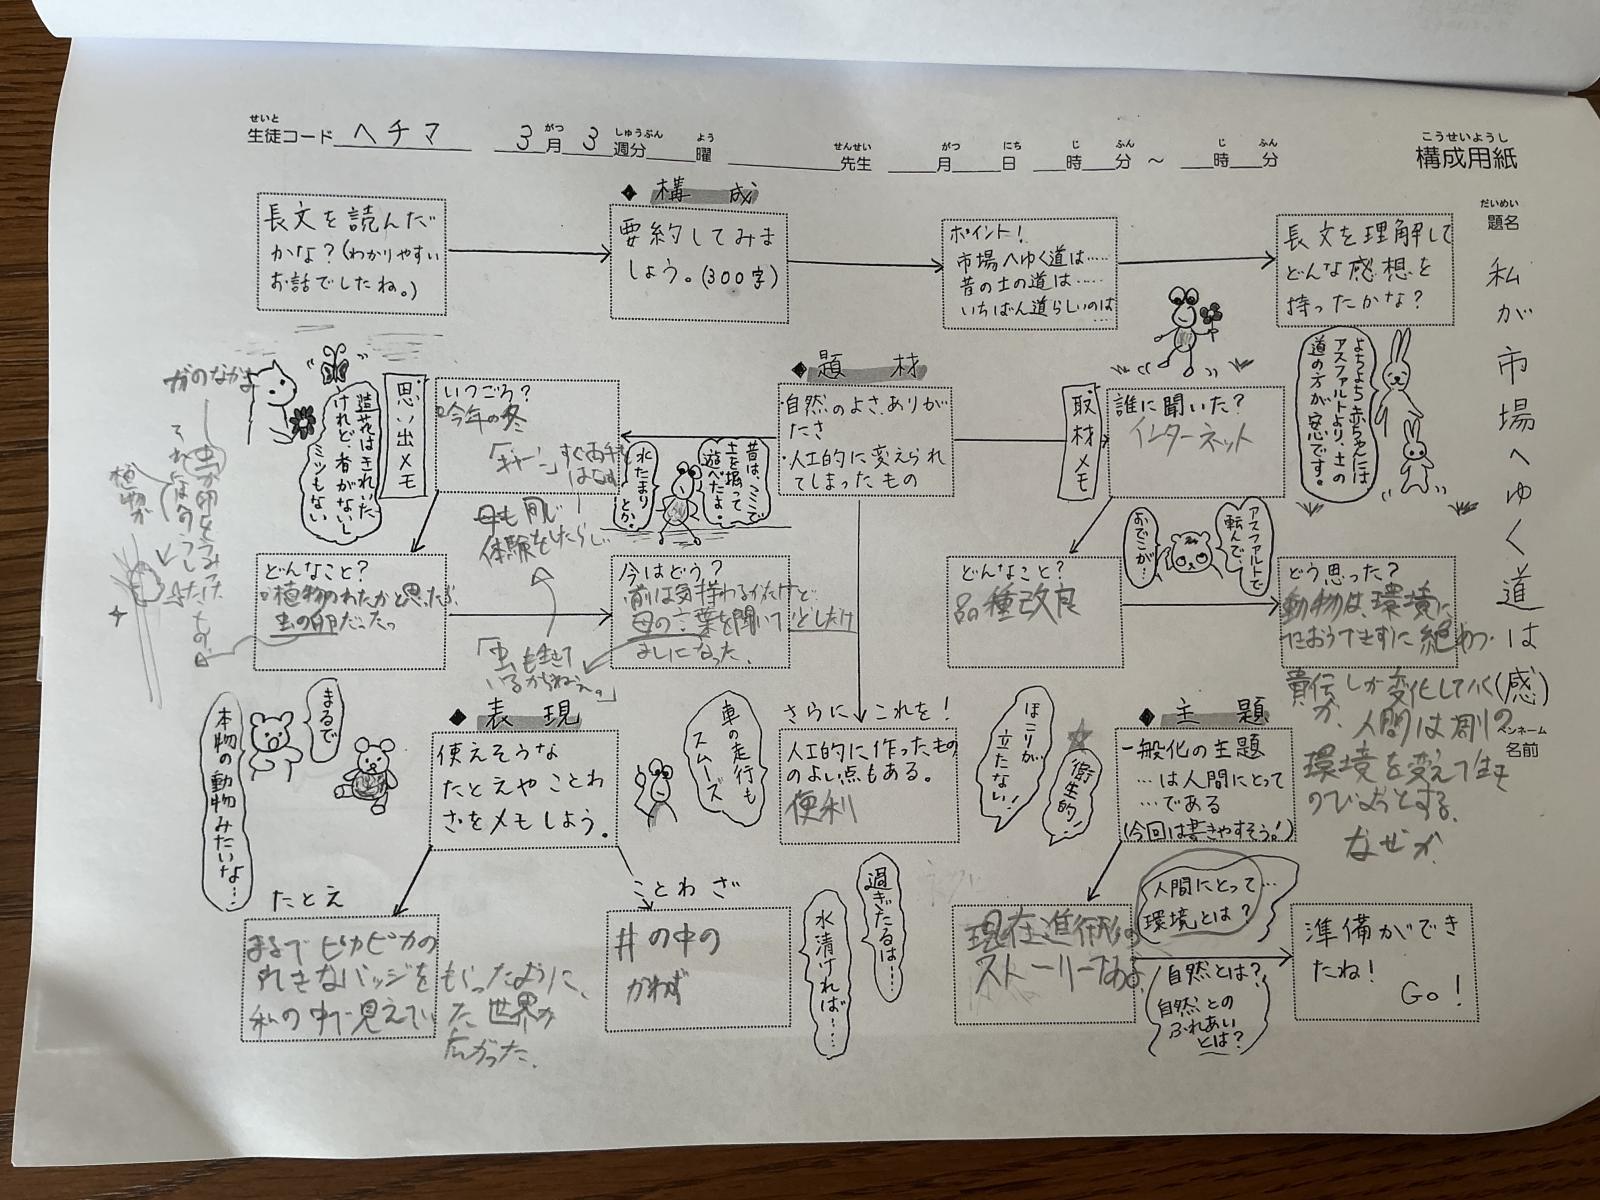 せいと
生徒コード ヘチマ 3月 3週分 曜 先生 月 日 時 分 ~ 時 分
がつ しゅうぶん よう せんせい がつ にち じ ふん じ ふん
こうせいようし
構成用紙
だいめい
題名
私が市場へゆく道は(感)
ペンネーム
名前
◆ 構 成
長文を読んだ
かな?(わかりやすい
お話でしたね。)
要約してみま
しょう。(300字)
ポイント!
市場へゆく道は……
昔の土の道は……
いちばん道らしいのは
…
長文を理解して
どんな感想を
持ったかな?
よちよち赤ちゃんには
アスファルトより、土の
道の方が安心です。
◆ 題 材
・自然のよさ、ありが
たさ
・人工的に変えられ
てしまったもの
取材メモ
誰に聞いた?
インターネット
思い出メモ
いつごろ?
今年の冬
「ギャーン」すぐ両手を
はなす
母も同じ
体験をしたらしい
造花はきれいだ
けれど、香がないし
ミツもない
昔は、ここで
土を掘って
遊べたよ。
水たまり
とか。
アスファルトで
転んで、
おでこが…
どんなこと?
植物のわたかと思ったが、
虫の卵だった。
今はどう?
前は気持わるかったけど
母の言葉を聞いて
よしになった。
「虫も生きて
いるからねえ。」
どんなこと?
品種改良
どう思った?
動物は、環境に
におうできずに絶めつ
しか変化していく
人間は周りの
環境を変えて生き
のびようとする。
なぜか
◆ 表 現
使えそうな
たとえやことわ
ざをメモしよう。
まるで
本物の動物みたいな…
さらにこれを!
人工的に作ったもの
のよい点もある。
便利
車の走行も
スムーズ
ほこりが
立たない!
衛生的
◆ 主 題
一般化の主題
…は人間にとって
…である
(今回は書きやすそう!)
たとえ
まるでピカピカの
きれきなバッジをもらったように、
私の中で見えていた世界が
広がった。
ことわざ
井の中の
かわず
過ぎたるは…
水清ければ……
現在進行形の
ストーリーである
人間にとって…
環境とは?
自然とは?
自然との
ふれあい
とは?
準備ができ
たね!
Go!